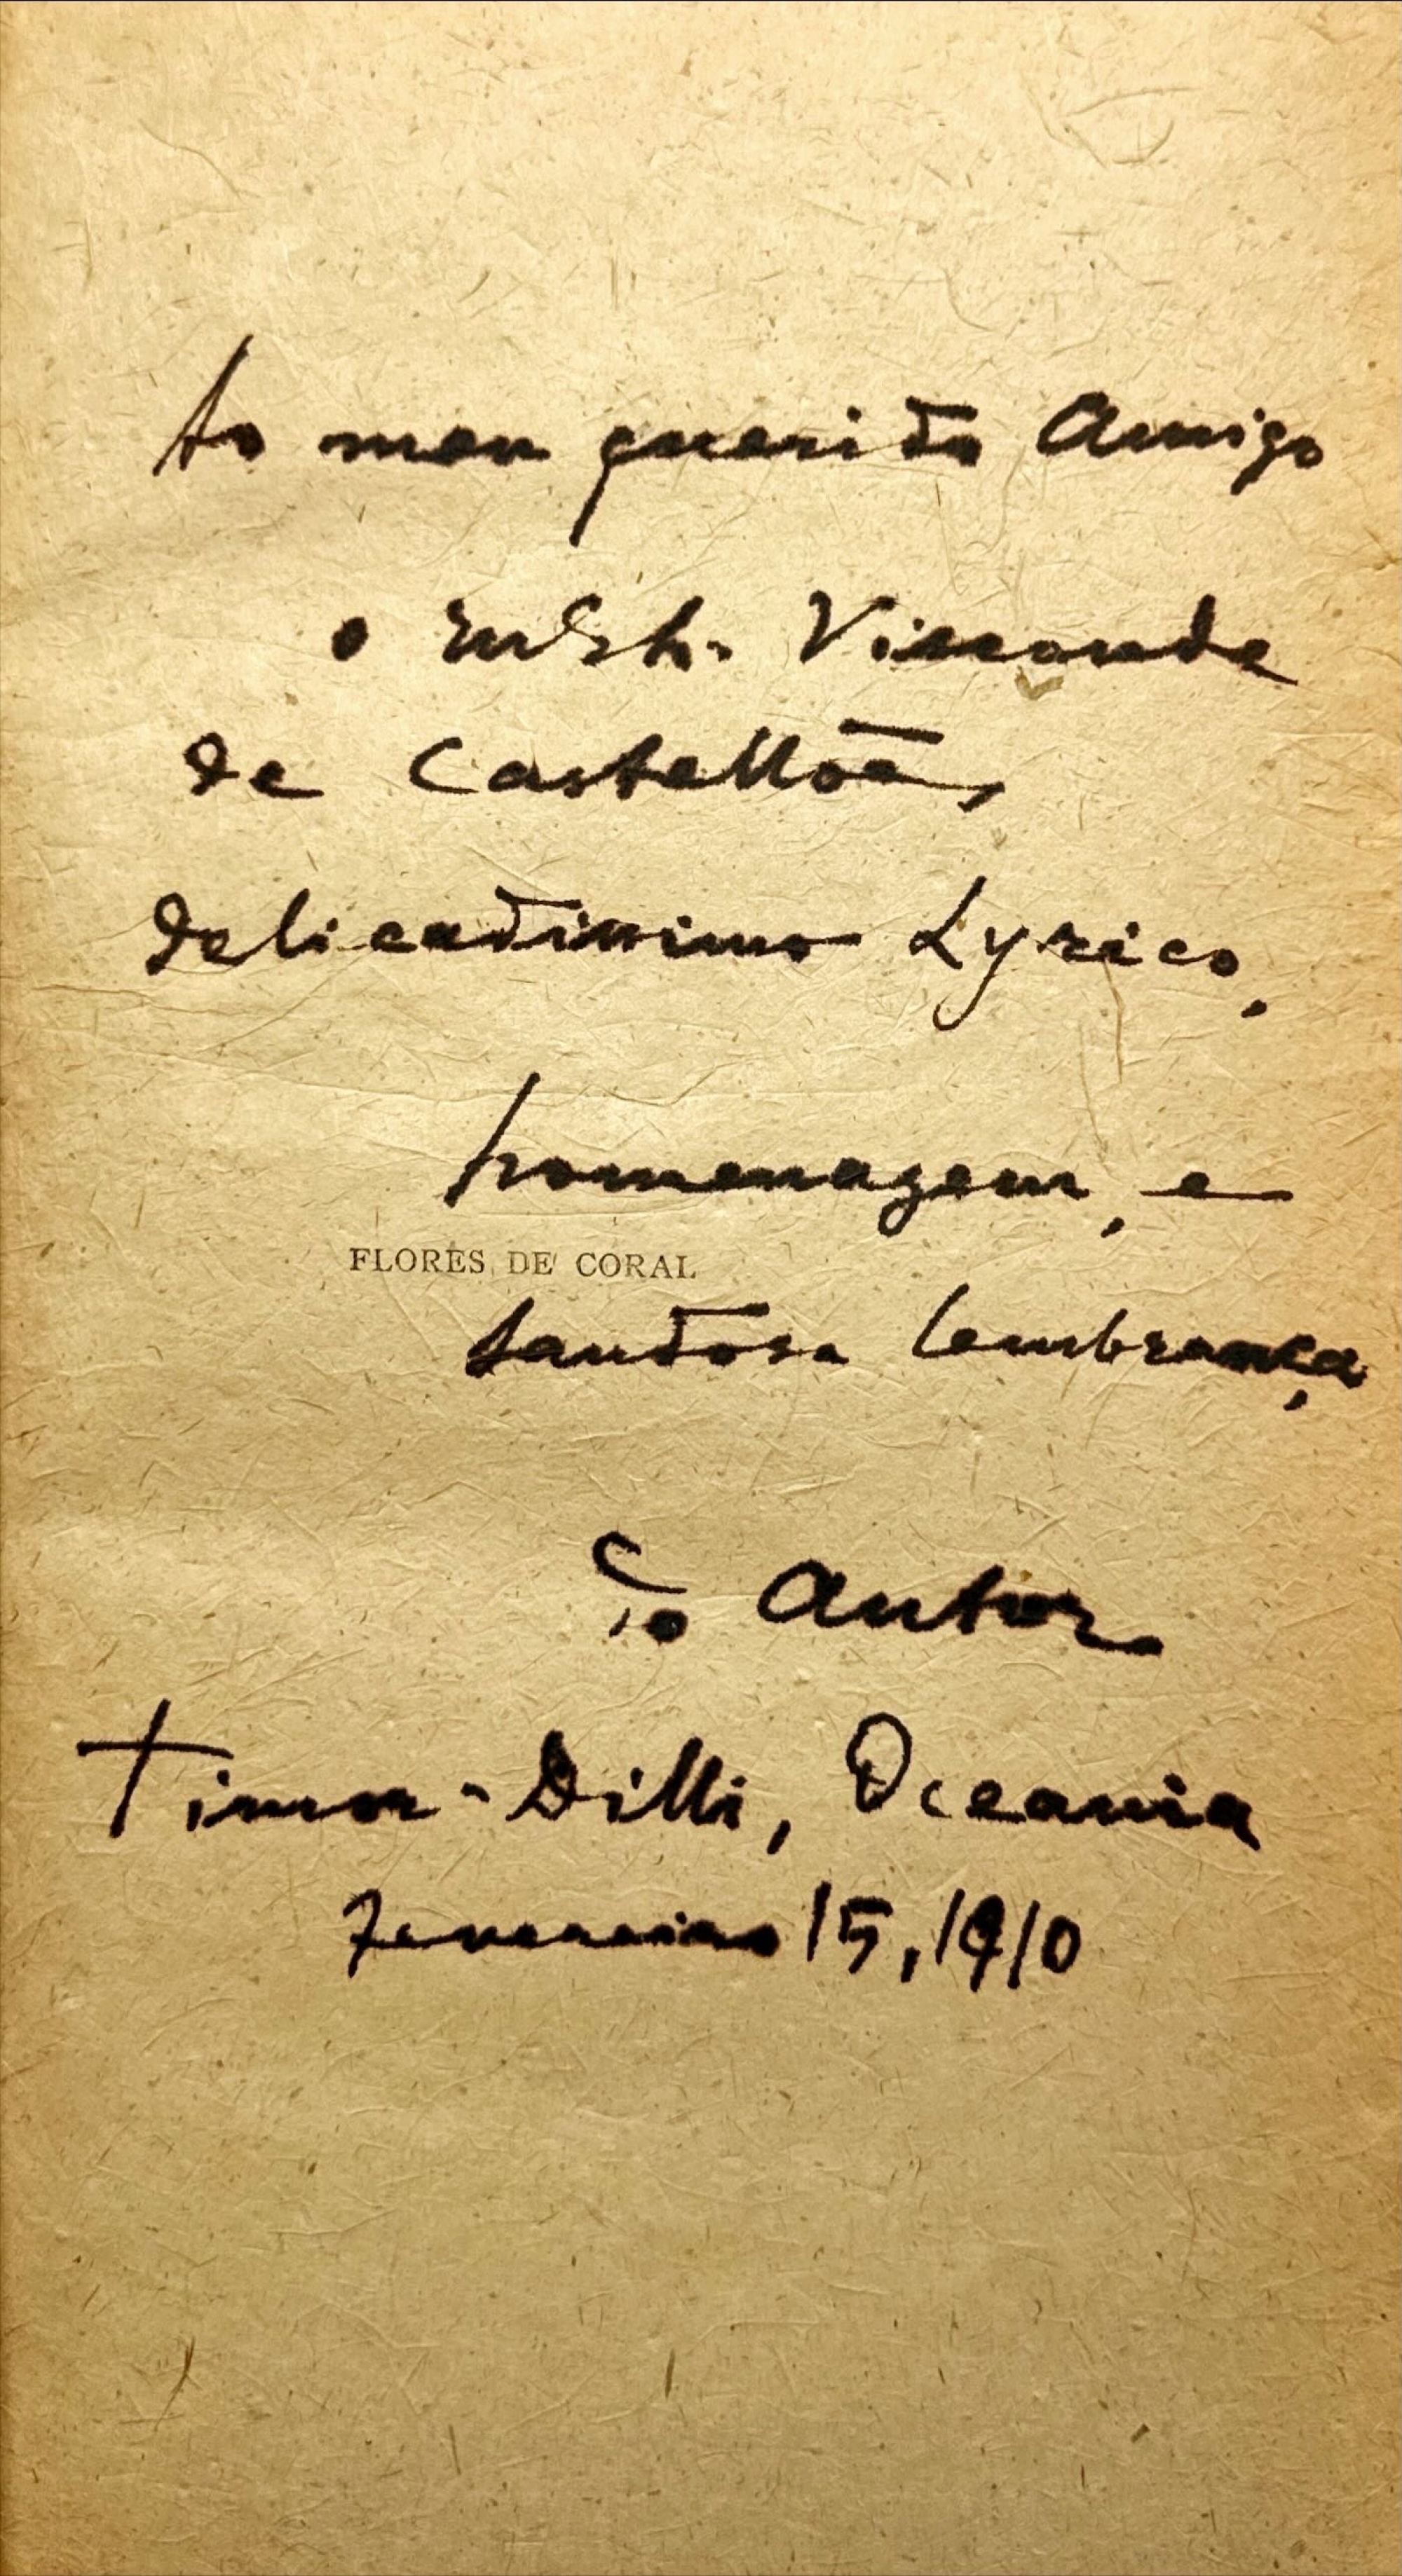 Ao meu querido Amigo
o Snr. Visconde
de Castellões,
delicadissimo Lyrico,
homenagem, e
FLORES DE CORAL
saudosa lembrança
do Autor
Timor-Dilli, Oceania
Fevereiro 15, 1910